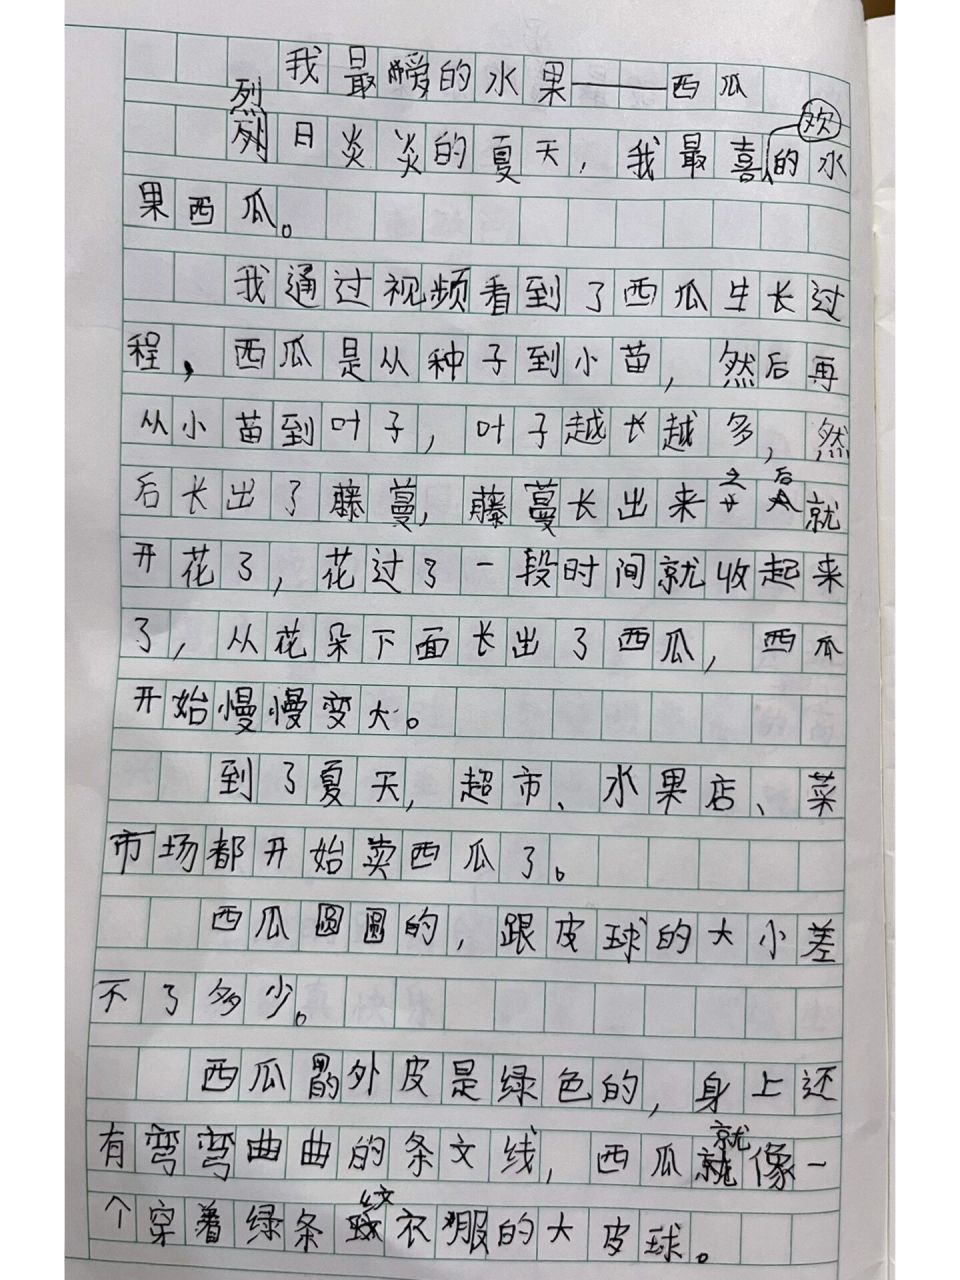 我最爱的水果——西瓜
烈日炎炎的夏天，我最喜欢的水
果西瓜。
我通过视频看到了西瓜生长过
程，西瓜是从种子到小苗，然后再
从小苗到叶子，叶子越长越多，然
后长出了藤蔓，藤蔓长出来之后就
开花了，花过了一段时间就收起来
了，从花朵下面长出了西瓜，西瓜
开始慢慢变大。
到了夏天，超市、水果店、菜
市场都开始卖西瓜了。
西瓜圆圆的，跟皮球的大小差
不了多少。
西瓜的外皮是绿色的，身上还
有弯弯曲曲的条文线，西瓜就像一
个穿着绿条纹衣服的大皮球。